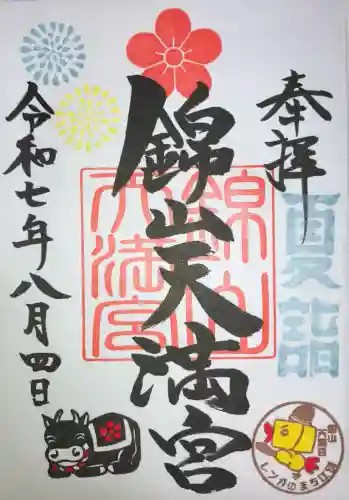 奉拝
夏詣
錦山天満宮
錦山天満宮
令和七年八月四日
錦山
天満宮
レンガのまち江別